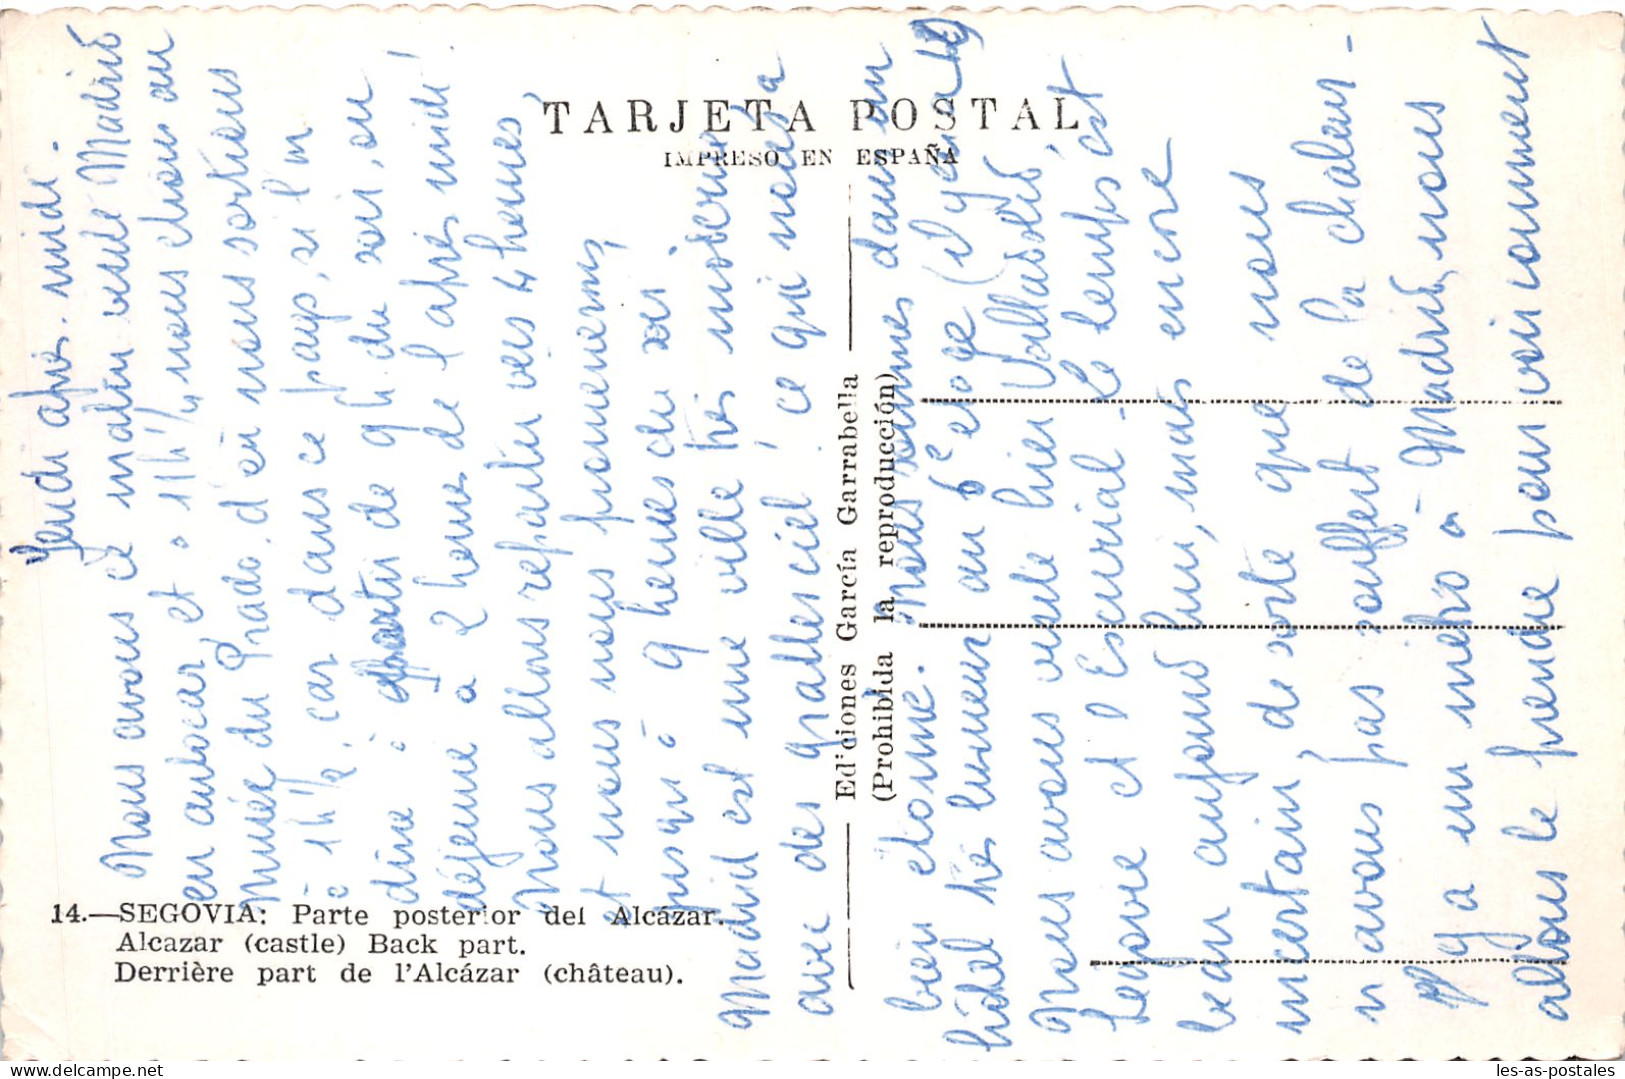 TARJETA POSTAL
IMPRESO EN ESPAÑA
Ediciones García Garrabella
(Prohibida la reproducción)
14.—SEGOVIA: Parte posterior del Alcázar.
Alcazar (castle) Back part.
Derrière part de l'Alcázar (château).
Jeudi après-midi.
Nous avons ce matin visité Madrid
en autocar, et à 11h1/4 nous étions au
musée du Prado, d'en nous sortions
à 1h1/2, car dans ce pays, si l'on
dîne à partir de 9h du soir, on
déjeune à 2 heures de l'après midi!
Nous allons repartir vers 4 heures,
et nous nous promenons,
jusqu'à 9 heures du soir.
Madrid est une ville très moderne
avec des gratte-ciel! ce qui nous a
bien étonné. Nous sommes dans un
hôtel très lumeux au 6e étage (il y en a 19)
Nous avons visité hier Valladolid,
Ségovie et l'Escurial. Le temps est
beau aujourd'hui, mais encore
incertain, de sorte que nous
n'avons pas souffert de la chaleur-
Il y a un métro à Madrid, nous
allons le prendre pour voir comment
les-as-postales